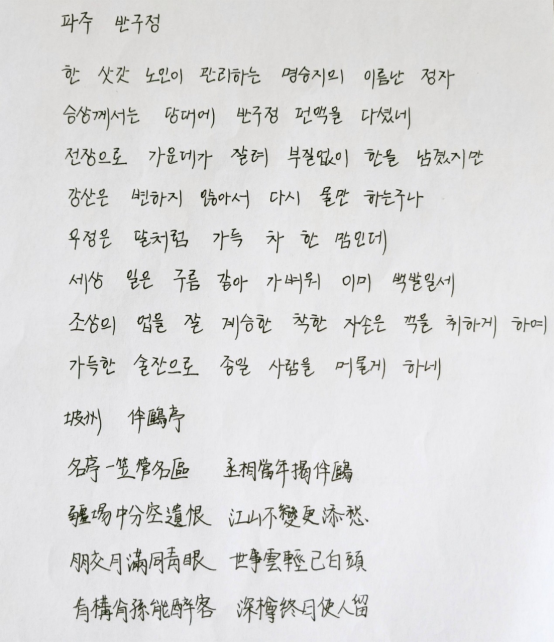 파주 반구정
한 삿갓 노인이 관리하는 명승지의 이름난 정자
승상께서는 당대에 반구정 편액을 다셨네
전장으로 가운데가 잘려 부질없이 한을 남겼지만
강산은 변하지 않아서 다시 물만 하는구나
우정은 달처럼 가득 차 한 맘인데
세상 일은 구름 같아 가벼워 이미 백발일세
조상의 업을 잘 계승한 착한 자손은 객을 취하게 하여
가득한 술잔으로 종일 사람을 머물게 하네
坡州 伴鷗亭
名亭一笠管名區 丞相當年揭伴鷗
疆場中分空遺恨 江山不變更添愁
朋交月滿同靑眼 世事雲輕已白頭
肯構肖孫能醉客 深樽終日使人留